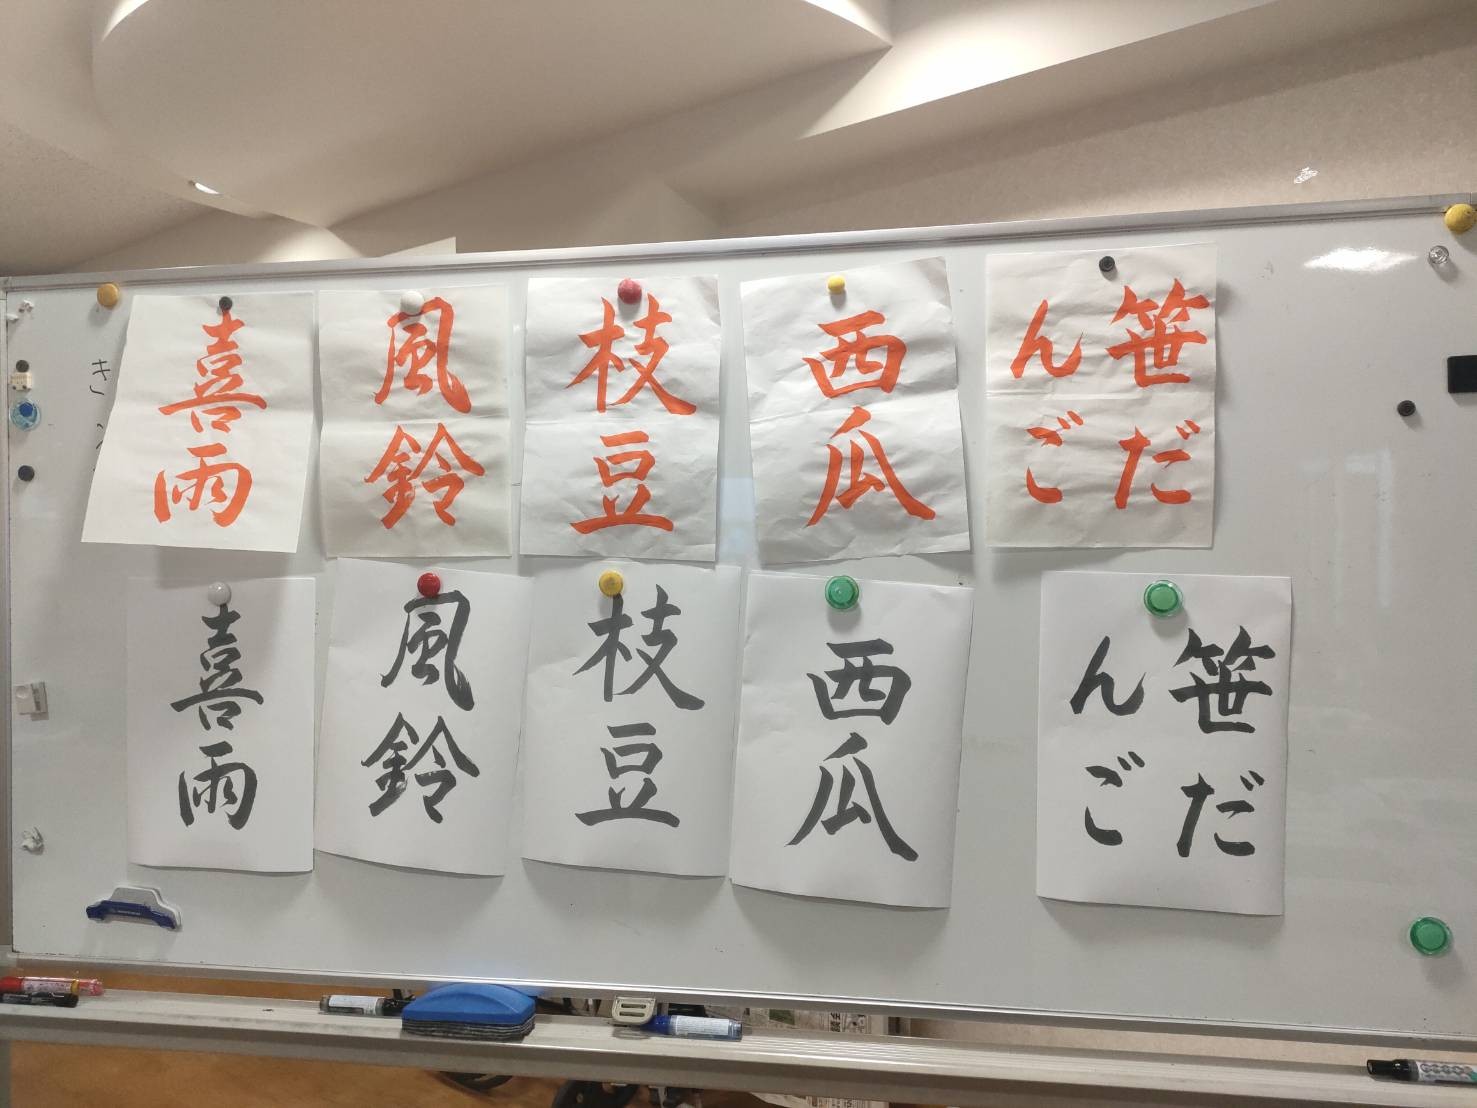 喜雨
風鈴
枝豆
西瓜
笹だ
んご
喜雨
風鈴
枝豆
西瓜
笹だ
んご
き